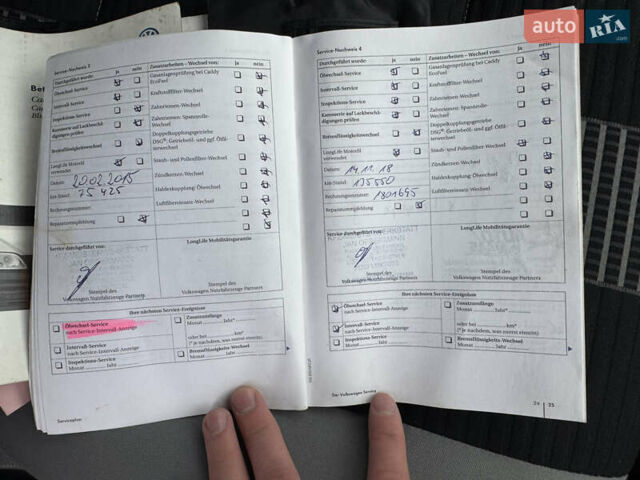 auto RIA.com
Service-Nachweis 3
Durchgeführt wurde: ja nein
Ölwechsel-Service
Intervall-Service
Inspektions-Service
Karosserie auf Lackbeschä-
digungen prüfen
Bremsflüssigkeitswechsel
LongLife Motoröl
verwendet
Datum: 20.02.2015
km-Stand: 75 425
Rechnungsnummer:
Reparaturempfehlung
Zusatzarbeiten - Wechsel von: ja nein
Gasanlagenprüfung bei Caddy
EcoFuel
Kraftstofffilter-Wechsel
Zahnriemen-Wechsel
Zahnriemen- Spannrolle-
Wechsel
Doppelkupplungsgetriebe
DSG®-Getriebeöl- und ggf. Ölfil-
terwechsel
Staub- und Pollenfilter-Wechsel
Zündkerzen-Wechsel
Haldexkupplung: Ölwechsel
Luftfiltereinsatz-Wechsel
Service durchgeführt von:
LongLife Mobilitätsgarantie
Stempel des
Volkswagen Nutzfahrzeuge Partners
Ihre nächsten Service-Ereignisse
Ölwechsel-Service
nach Service-Intervall-Anzeige
Intervall-Service
nach Service-Intervall-Anzeige
Inspektions-Service
Monat Jahr
Zusatzumfänge
Monat Jahr*
oder bei km*
(* je nachdem, was zuerst eintritt)
Bremsflüssigkeits-Wechsel
Monat Jahr
Serviceplan
Service-Nachweis 4
Durchgeführt wurde: ja nein
Ölwechsel-Service
Intervall-Service
Inspektions-Service
Karosserie auf Lackbeschä-
digungen prüfen
Bremsflüssigkeitswechsel
LongLife Motoröl
verwendet
Datum: 14.11.18
km-Stand: 135550
Rechnungsnummer: 1801695
Reparaturempfehlung
Zusatzarbeiten - Wechsel von: ja nein
Gasanlagenprüfung bei Caddy
EcoFuel
Kraftstofffilter-Wechsel
Zahnriemen-Wechsel
Zahnriemen- Spannrolle-
Wechsel
Doppelkupplungsgetriebe
DSG®-Getriebeöl- und ggf. Ölfil-
terwechsel
Staub- und Pollenfilter-Wechsel
Zündkerzen-Wechsel
Haldexkupplung: Ölwechsel
Luftfiltereinsatz-Wechsel
Service durchgeführt von:
LongLife Mobilitätsgarantie
Stempel des
Volkswagen Nutzfahrzeuge Partners
Ihre nächsten Service-Ereignisse
Ölwechsel-Service
nach Service-Intervall-Anzeige
Intervall-Service
nach Service-Intervall-Anzeige
Inspektions-Service
Monat Jahr
Zusatzumfänge
Monat Jahr*
oder bei km*
(* je nachdem, was zuerst eintritt)
Bremsflüssigkeits-Wechsel
Monat Jahr
Der Volkswagen Service
24 25